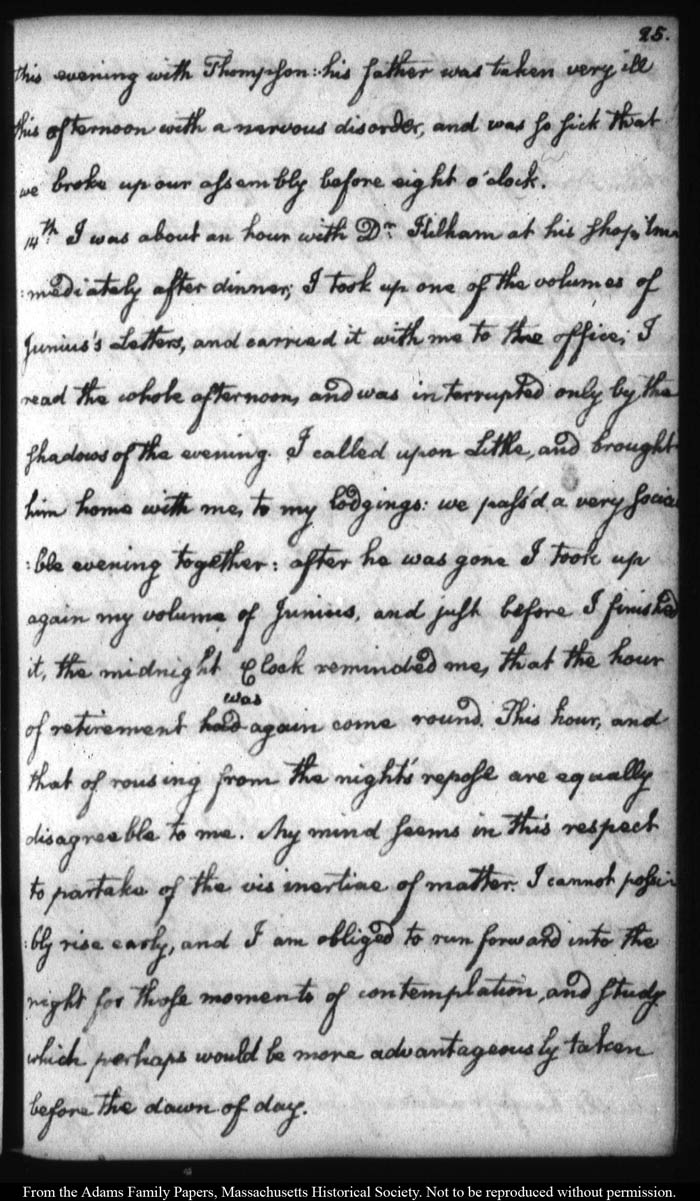 25.
this evening with Thompson: his father was taken very ill
this afternoon with a nervous disorder, and was so sick that
we broke up our assembly before eight o'clock.
14th. I was about an hour with Dr. Kilham at his shop, im
:mediately after dinner; I took up one of the volumes of
Junius's Letters, and carried it with me to the office; I
read the whole afternoon, and was interrupted only by the
shadows of the evening. I called upon Little, and brought
him home with me, to my lodgings: we pass'd a very socia
:ble evening together: after he was gone I took up
again my volume of Junius, and just before I finished
it, the midnight Clock reminded me, that the hour
was
of retirement had again come round. This hour, and
that of rousing from the night's repose are equally
disagreeable to me. My mind seems in this respect
to partake of the vis inertiae of matter. I cannot possi
:bly rise early, and I am obliged to run forward into the
night for those moments of contemplation, and study
which perhaps would be more advantageously taken
before the dawn of day.
From the Adams Family Papers, Massachusetts Historical Society. Not to be reproduced without permission.